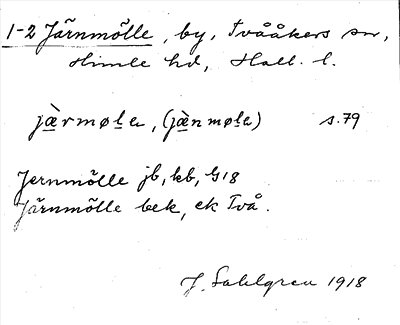 1-2 Järnmölle, by, Tvååkers sn,
Himle hd, Hall. l.
jæ̀rmøla, (jæ̀nmøla) s. 79
Jernmölle jb, kb, G18
Järnmölle bek, ek Två.
J. Sahlgren 1918